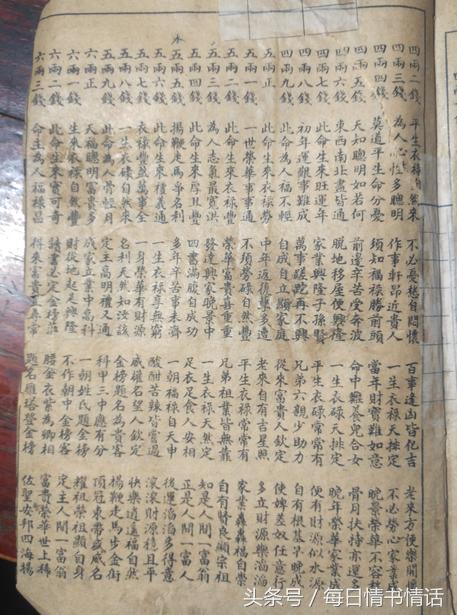 四兩二錢 平生衣祿自然來 不必憂愁自開懷 百事逢凶皆化吉 老來方便樂開懷
四兩三錢 為人心性多聰明 作事軒昂近貴人 一生衣祿天排定 不必勞心家業成
四兩四錢 莫道平生命分憂 須知福祿勝前頭 當年財寶難如意 晚景榮華不容易
天如聰明如若何 前邊辛苦受奔波 命中難養兒合女 骨月扶持亦運多
四兩六錢 東西南北盡皆通 脫地移屋便興隆 一生衣祿天排定 晚年榮華家業成
四兩七錢 此命生來旺運年 家業興隆子孫賢 平生衣祿常常有 便有財源似水源
四兩八錢 初年艱難事難成 萬事蹉跎再不興 兄弟六親少助力 自有根基早晚成
四兩九錢 此命為人福不輕 自成自立顯家庭 從來富貴人欽定 使婢差奴任意行
五兩正 此命生來衣祿勞 中年返復多遭 老來自有吉星照 多立財源樂滔滔
五兩一錢 一世榮華事事通 不須勞碌自然亨 平生衣祿常常有 家業福自榮
五兩二錢 此命生來衣祿豐 榮華富貴喜重重 兄弟祖業皆無靠 自有賢良顯宗祖
五兩三錢 為人志氣最寬洪 發達興家晚景中 一生衣祿天然定 知是人間一富翁
五兩四錢 此命生來厚且豐 四書滿腹自成功 足衣足食人安相 正是人間一富人
五兩五錢 揚鞭走馬爭名利 多年辛苦事未濟 一朝福祿自天申 後運滔滔多得意
五兩六錢 此命生來禮義通 一生衣祿享無窮 酸甜苦辣皆嘗過 滾滾財源穩且平
五兩七錢 衣祿豐然萬事全 一身榮華有財源 威權名望人欽定 快樂逍遙福自然
五兩八錢 一生衣祿自然來 名利天然如汝該 金榜題名為貴客 揚鞭走馬步金街
五兩九錢 此命為人骨輕月 定主高明禮又通 科甲三中應有分 頂冠束帶威名
六兩正 天福聰明富貴多 成家立業中高科 一朝姓氏題金榜 耀祖榮祖顯自身
六兩一錢 生來衣祿自然豐 財從地起是興隆 不作朝中金榜客 定主人間一富翁
六兩二錢 此命生來實可奇 讀書必定金榜 腰金衣紫為卿相 富貴榮華世上稀
六兩三錢 命主為人福祿昌 得來富貴異尋常 題名雁塔登金榜 佐聖安邦四海揚
头条号 / 每日情书情话